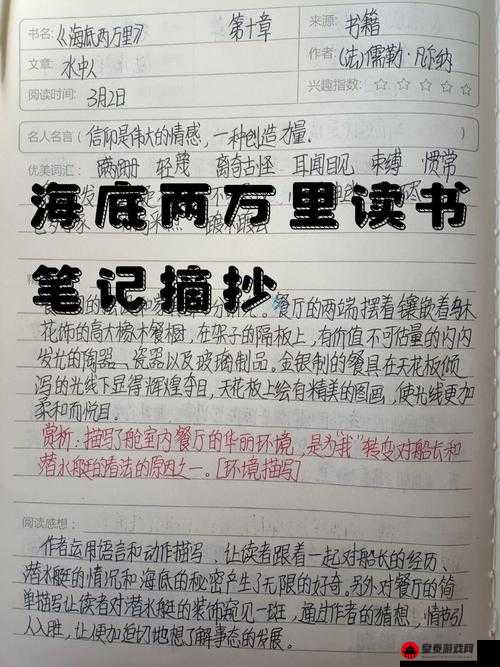 书名:《海底两万里》 第十章 来源: 书籍
文章: 水中人 作者: (法)儒勒·凡尔纳
阅读时间: 3月2日 兴趣指数: ☆☆☆☆☆
名人名言 (信仰是伟大的情感,一种创造力量.
优美词汇: 蹒跚 轻蔑 离奇古怪 耳闻目见 束缚 惯常
海底两万里读书
笔记摘抄
餐厅的两端摆着镶嵌着乌木
花饰的高大橡木餐橱,在架子的隔板上,有价值不可估量的闪闪
发光的陶器、瓷器以及玻璃制品。金银制的餐具在天花板倾
泻的光线下显得辉煌夺目,天花板上绘有精美的图画,使光线更加
柔和而悦目。
赏析:描写了舱室内餐厅的华丽环境,是为“我”转变对船长和
潜水艇的看法的原因之一。[环境描写]
阅读感想:
作者运用语言和动作描写、让读者跟着一起对船长的经历、
潜水艇的情况和海底的秘密产生了无限的好奇。另外对餐厅的简
单描写让读者对潜水艇的装饰窥见一斑,通过作者的猜想,情节引
人入胜,让人更加迫切地想了解事态的发展。
皇泰游戏网